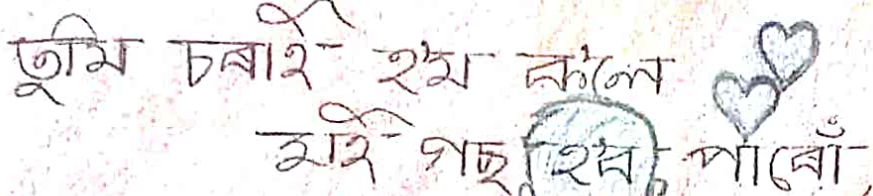 তুমি চৰাই হ'ম ক'লে
মই গছ হ'ব পাৰোঁ